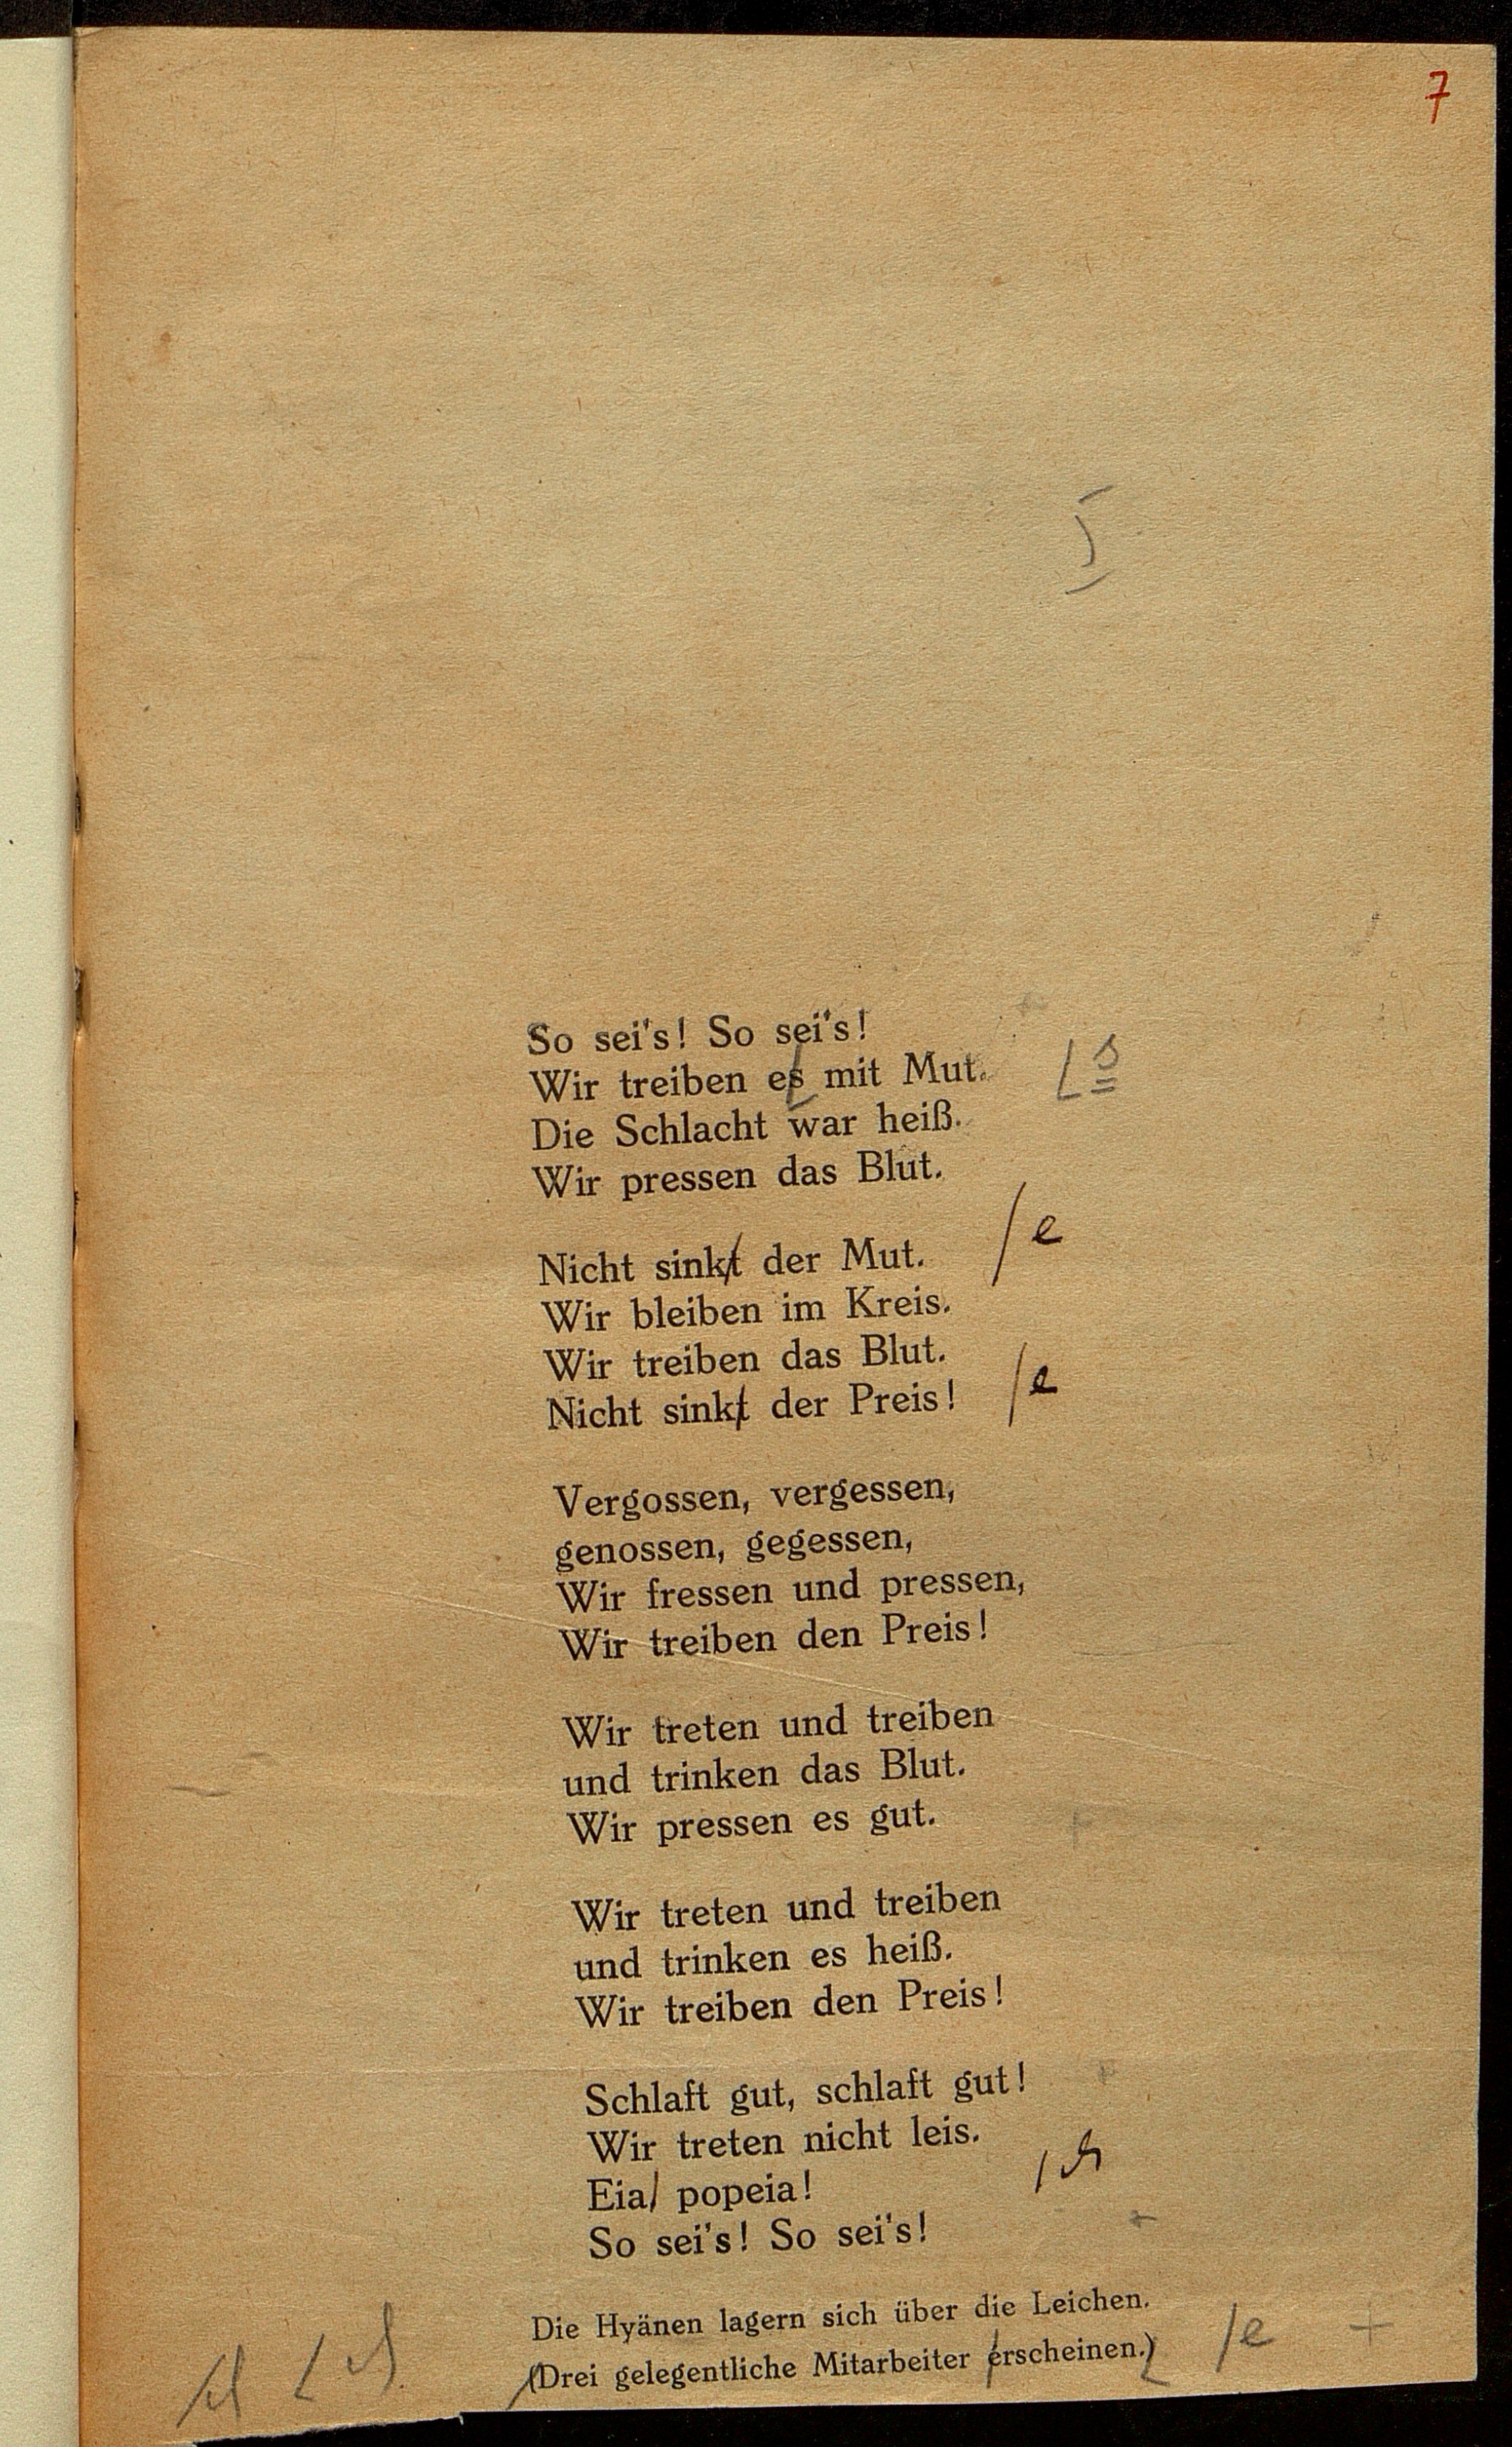 7
So sei's! So sei's!
Wir treiben es mit Mut.
s
Die Schlacht war heiß.
Wir pressen das Blut.
Nicht sinkt der Mut.
e
Wir bleiben im Kreis.
Wir treiben das Blut.
Nicht sinkt der Preis!
e
Vergossen, vergessen,
genossen, gegessen,
Wir fressen und pressen,
Wir treiben den Preis!
Wir treten und treiben
und trinken das Blut.
Wir pressen es gut.
Wir treten und treiben
und trinken es heiß.
Wir treiben den Preis!
Schlaft gut, schlaft gut!
Wir treten nicht leis.
Eia popeia!
So sei's! So sei's!
Die Hyänen lagern sich über die Leichen.
(Drei gelegentliche Mitarbeiter erscheinen.)
e